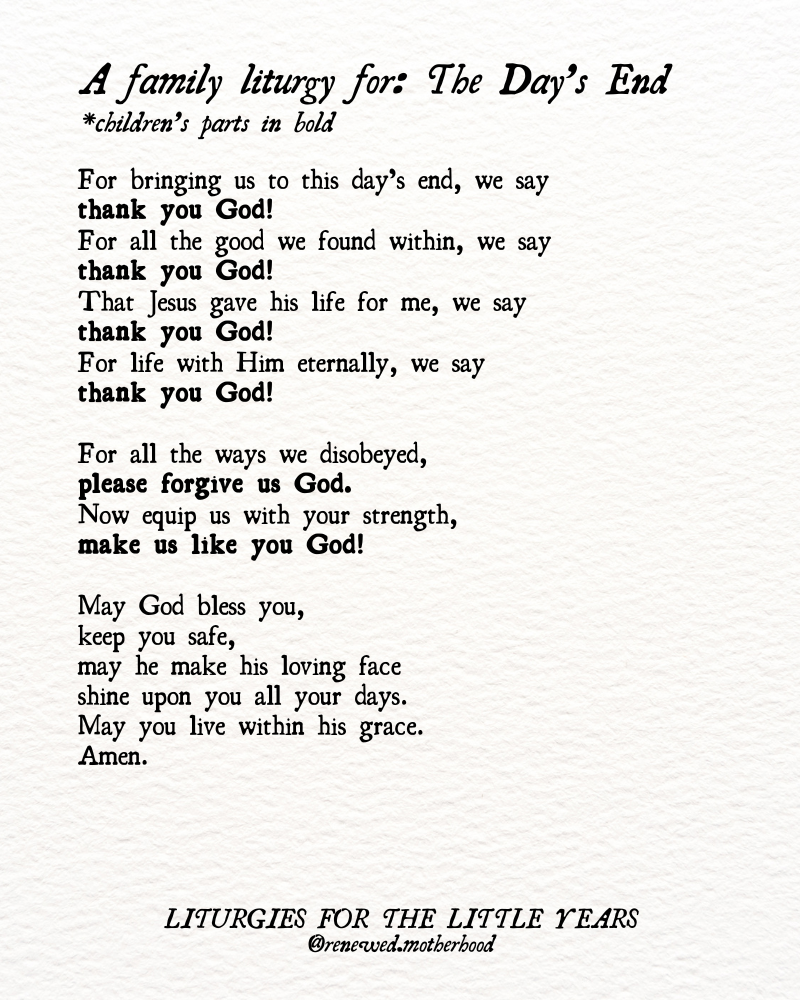 A family liturgy for: The Day's End
*children's parts in bold
For bringing us to this day's end, we say
thank you God!
For all the good we found within, we say
thank you God!
That Jesus gave his life for me, we say
thank you God!
For life with Him eternally, we say
thank you God!
For all the ways we disobeyed,
please forgive us God.
Now equip us with your strength,
make us like you God!
May God bless you,
keep you safe,
may he make his loving face
shine upon you all your days.
May you live within his grace.
Amen.
LITURGIES FOR THE LITTLE YEARS
@renewed.motherhood